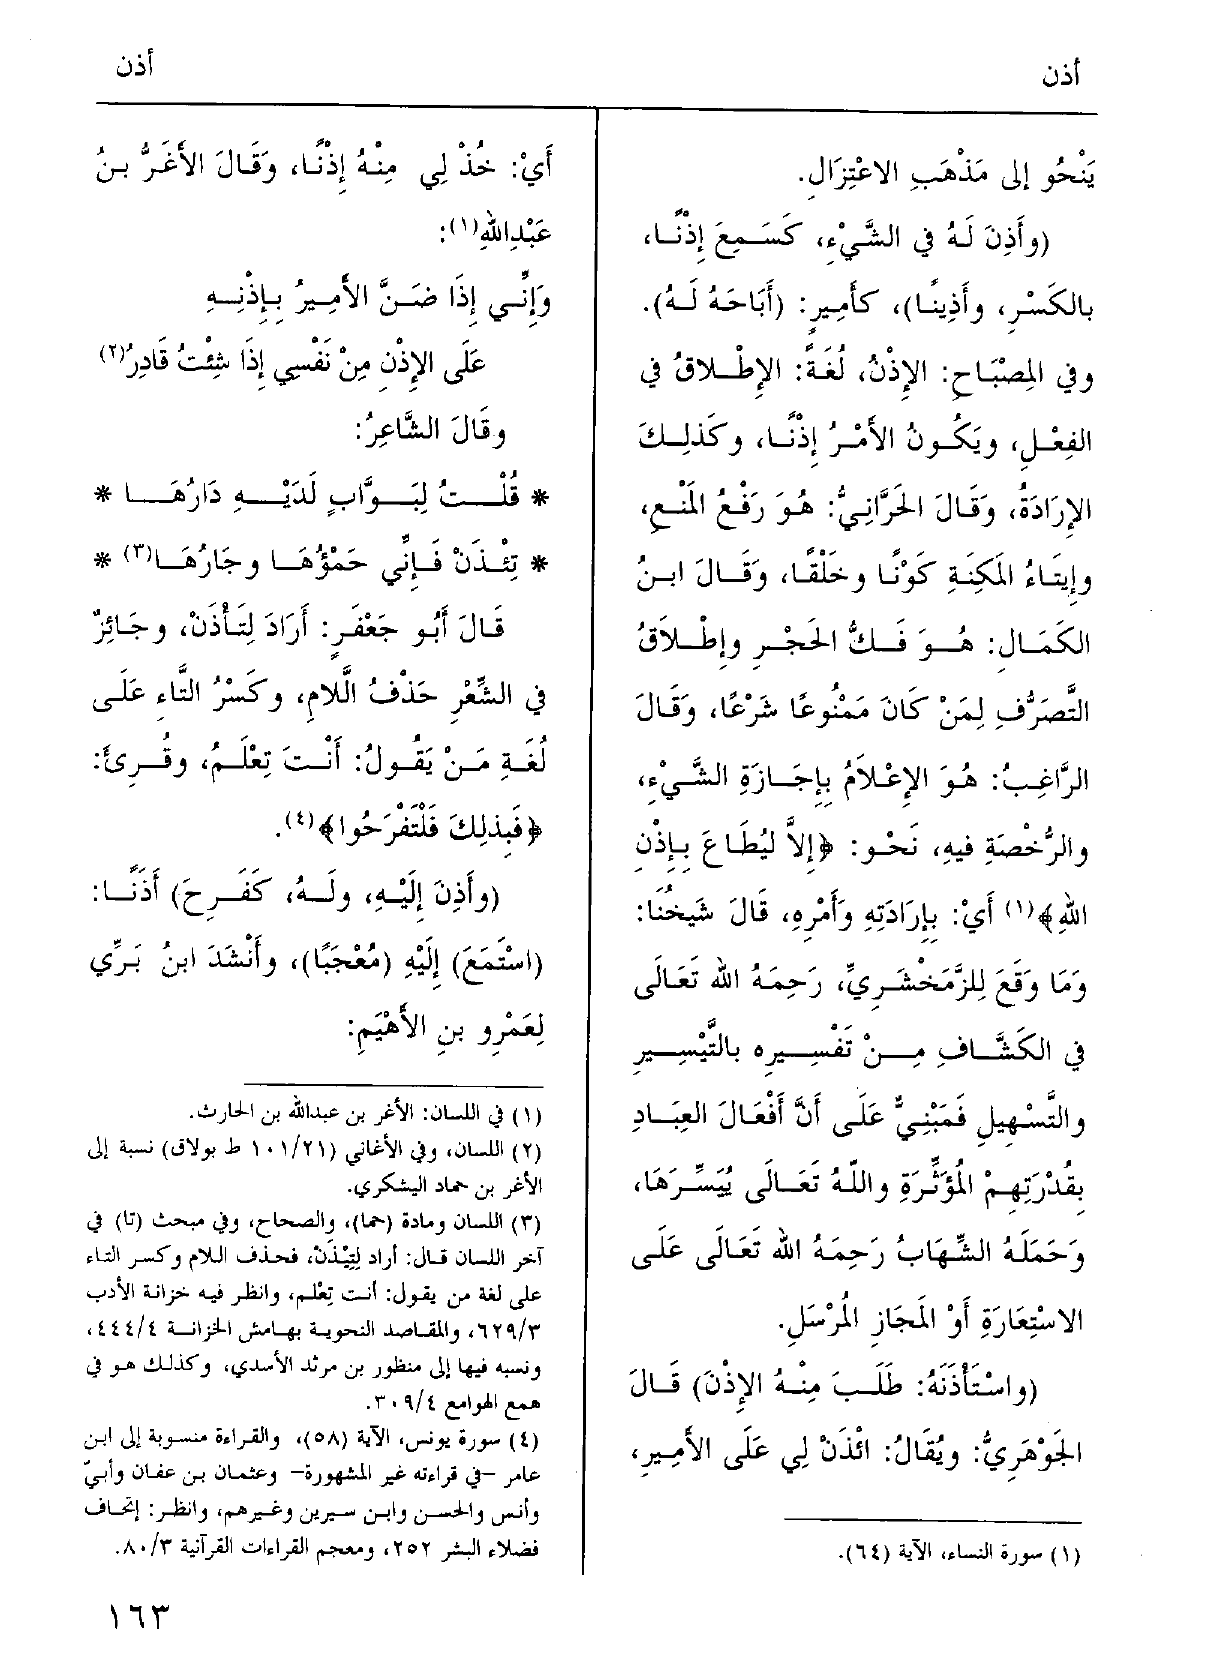 أذن
أذن
يَنْحُو إلى مَذْهَبِ الاعْتِزَالِ.
(وأَذِنَ لَهُ في الشَّيْءِ، كَسَمِعَ إِذْنًا،
بالكَسْرِ، وأَذِينًا)، كأَمِيرٍ: (أَبَاحَهُ لَهُ).
وفي المِصْبَاحِ: الإِذْنُ، لُغَةً: الإِطْلاقُ في
الفِعْلِ، ويَكُونُ الأَمْرُ إِذْنًا، وكَذلِكَ
الإِرَادَةُ، وَقَالَ الحَرَّانِيُّ: هُوَ رَفْعُ المَنْعِ،
وإِيتَاءُ المَكِنَةِ كَوْنًا وخَلْقًا، وَقَالَ ابنُ
الكَمَالِ: هُوَ فَكُّ الحَجْرِ وإِطْلاَقُ
التَّصَرُّفِ لِمَنْ كَانَ مَمْنُوعًا شَرْعًا، وَقَالَ
الرَّاغِبُ: هُوَ الإِعْلاَمُ بِإِجَازَةِ الشَّيْءِ،
والرُّخْصَةِ فيهِ، نَحْو: ﴿إلاَّ لِيُطَاعَ بِإِذْنِ
اللهِ﴾(١) أَيْ: بِإِرَادَتِهِ وَأَمْرِهِ، قَالَ شَيْخُنَا:
وَمَا وَقَعَ لِلزَّمَخْشَرِيِّ، رَحِمَهُ الله تَعَالَى
في الكَشَّافِ مِنْ تَفْسِيرِه بالتَّيْسِيرِ
والتَّسْهِيلِ فَمَبْنِيٌّ عَلَى أَنَّ أَفْعَالَ العِبَادِ
بِقُدْرَتِهِمْ المُؤَثِّرَةِ واللّهُ تَعَالَى يُيَسِّرُهَا،
وَحَمَلَهُ الشِّهَابُ رَحِمَهُ الله تَعَالَى عَلَى
الاسْتِعَارَةِ أَوْ المَجَازِ المُرْسَلِ.
(واسْتَأْذَنَهُ: طَلَبَ مِنْهُ الإِذْنَ) قَالَ
الجَوْهَرِيُّ: ويُقَالُ: ائْذَنْ لِي عَلَى الأَمِيرِ،
(١) سورة النساء، الآية (٦٤).
أَيْ: خُذْ لِي مِنْهُ إِذْنًا، وَقَالَ الأَغَرُّ بنُ
عَبْدِاللهِ(١):
وَإِنِّي إِذَا ضَنَّ الأَمِيرُ بِإِذْنِهِ
عَلَى الإِذْنِ مِنْ نَفْسِي إِذَا شِئْتُ قَادِرُ(٢)
وقَالَ الشَّاعِرُ:
* قُلْتُ لِبَوَّابٍ لَدَيْهِ دَارُهَا *
* تِئْذَنْ فَإِنِّي حَمْؤُهَا وجَارُهَا(٣) *
قَالَ أَبُو جَعْفَرٍ: أَرَادَ لِتَأْذَنْ، وجَائِزٌ
في الشِّعْرِ حَذْفُ الَّلامِ، وكَسْرُ التَّاءِ عَلَى
لُغَةِ مَنْ يَقُولُ: أَنْتَ تِعْلَمُ، وقُرِئَ:
﴿فَبِذلِكَ فَلْتَفْرَحُوا﴾(٤).
(وأَذِنَ إِلَيْهِ، ولَهُ، كَفَرِحَ) أَذَنًا:
(اسْتَمَعَ) إِلَيْهِ (مُعْجَبًا)، وأَنْشَدَ ابنُ بَرِّي
لِعَمْرِو بنِ الأَهْيَمِ:
(١) في اللسان: الأغر بن عبدالله بن الحارث.
(٢) اللسان، وفي الأغاني (١٠١/٢١ ط بولاق) نسبة إلى
الأغر بن حماد اليشكري.
(٣) اللسان ومادة (حما)، والصحاح، وفي مبحث (تا) في
آخر اللسان قال: أراد لِتِيْذَنْ، فحذف اللام وكسر التاء
على لغة من يقول: أنت تِعْلم، وانظر فيه خزانة الأدب
٦٢٩/٣، والمقاصد النحوية بهامش الخزانة ٤٤٤/٤،
ونسبه فيها إلى منظور بن مرثد الأسدي، وكذلك هو في
همع الهوامع ٣٠٩/٤.
(٤) سورة يونس، الآية (٥٨)، والقراءة منسوبة إلى ابن
عامر -في قراءته غير المشهورة- وعثمان بن عفان وأبيّ
وأنس والحسن وابن سيرين وغيرهم، وانظر: إتحاف
فضلاء البشر ٢٥٢، ومعجم القراءات القرآنية ٨٠/٣.
١٦٣